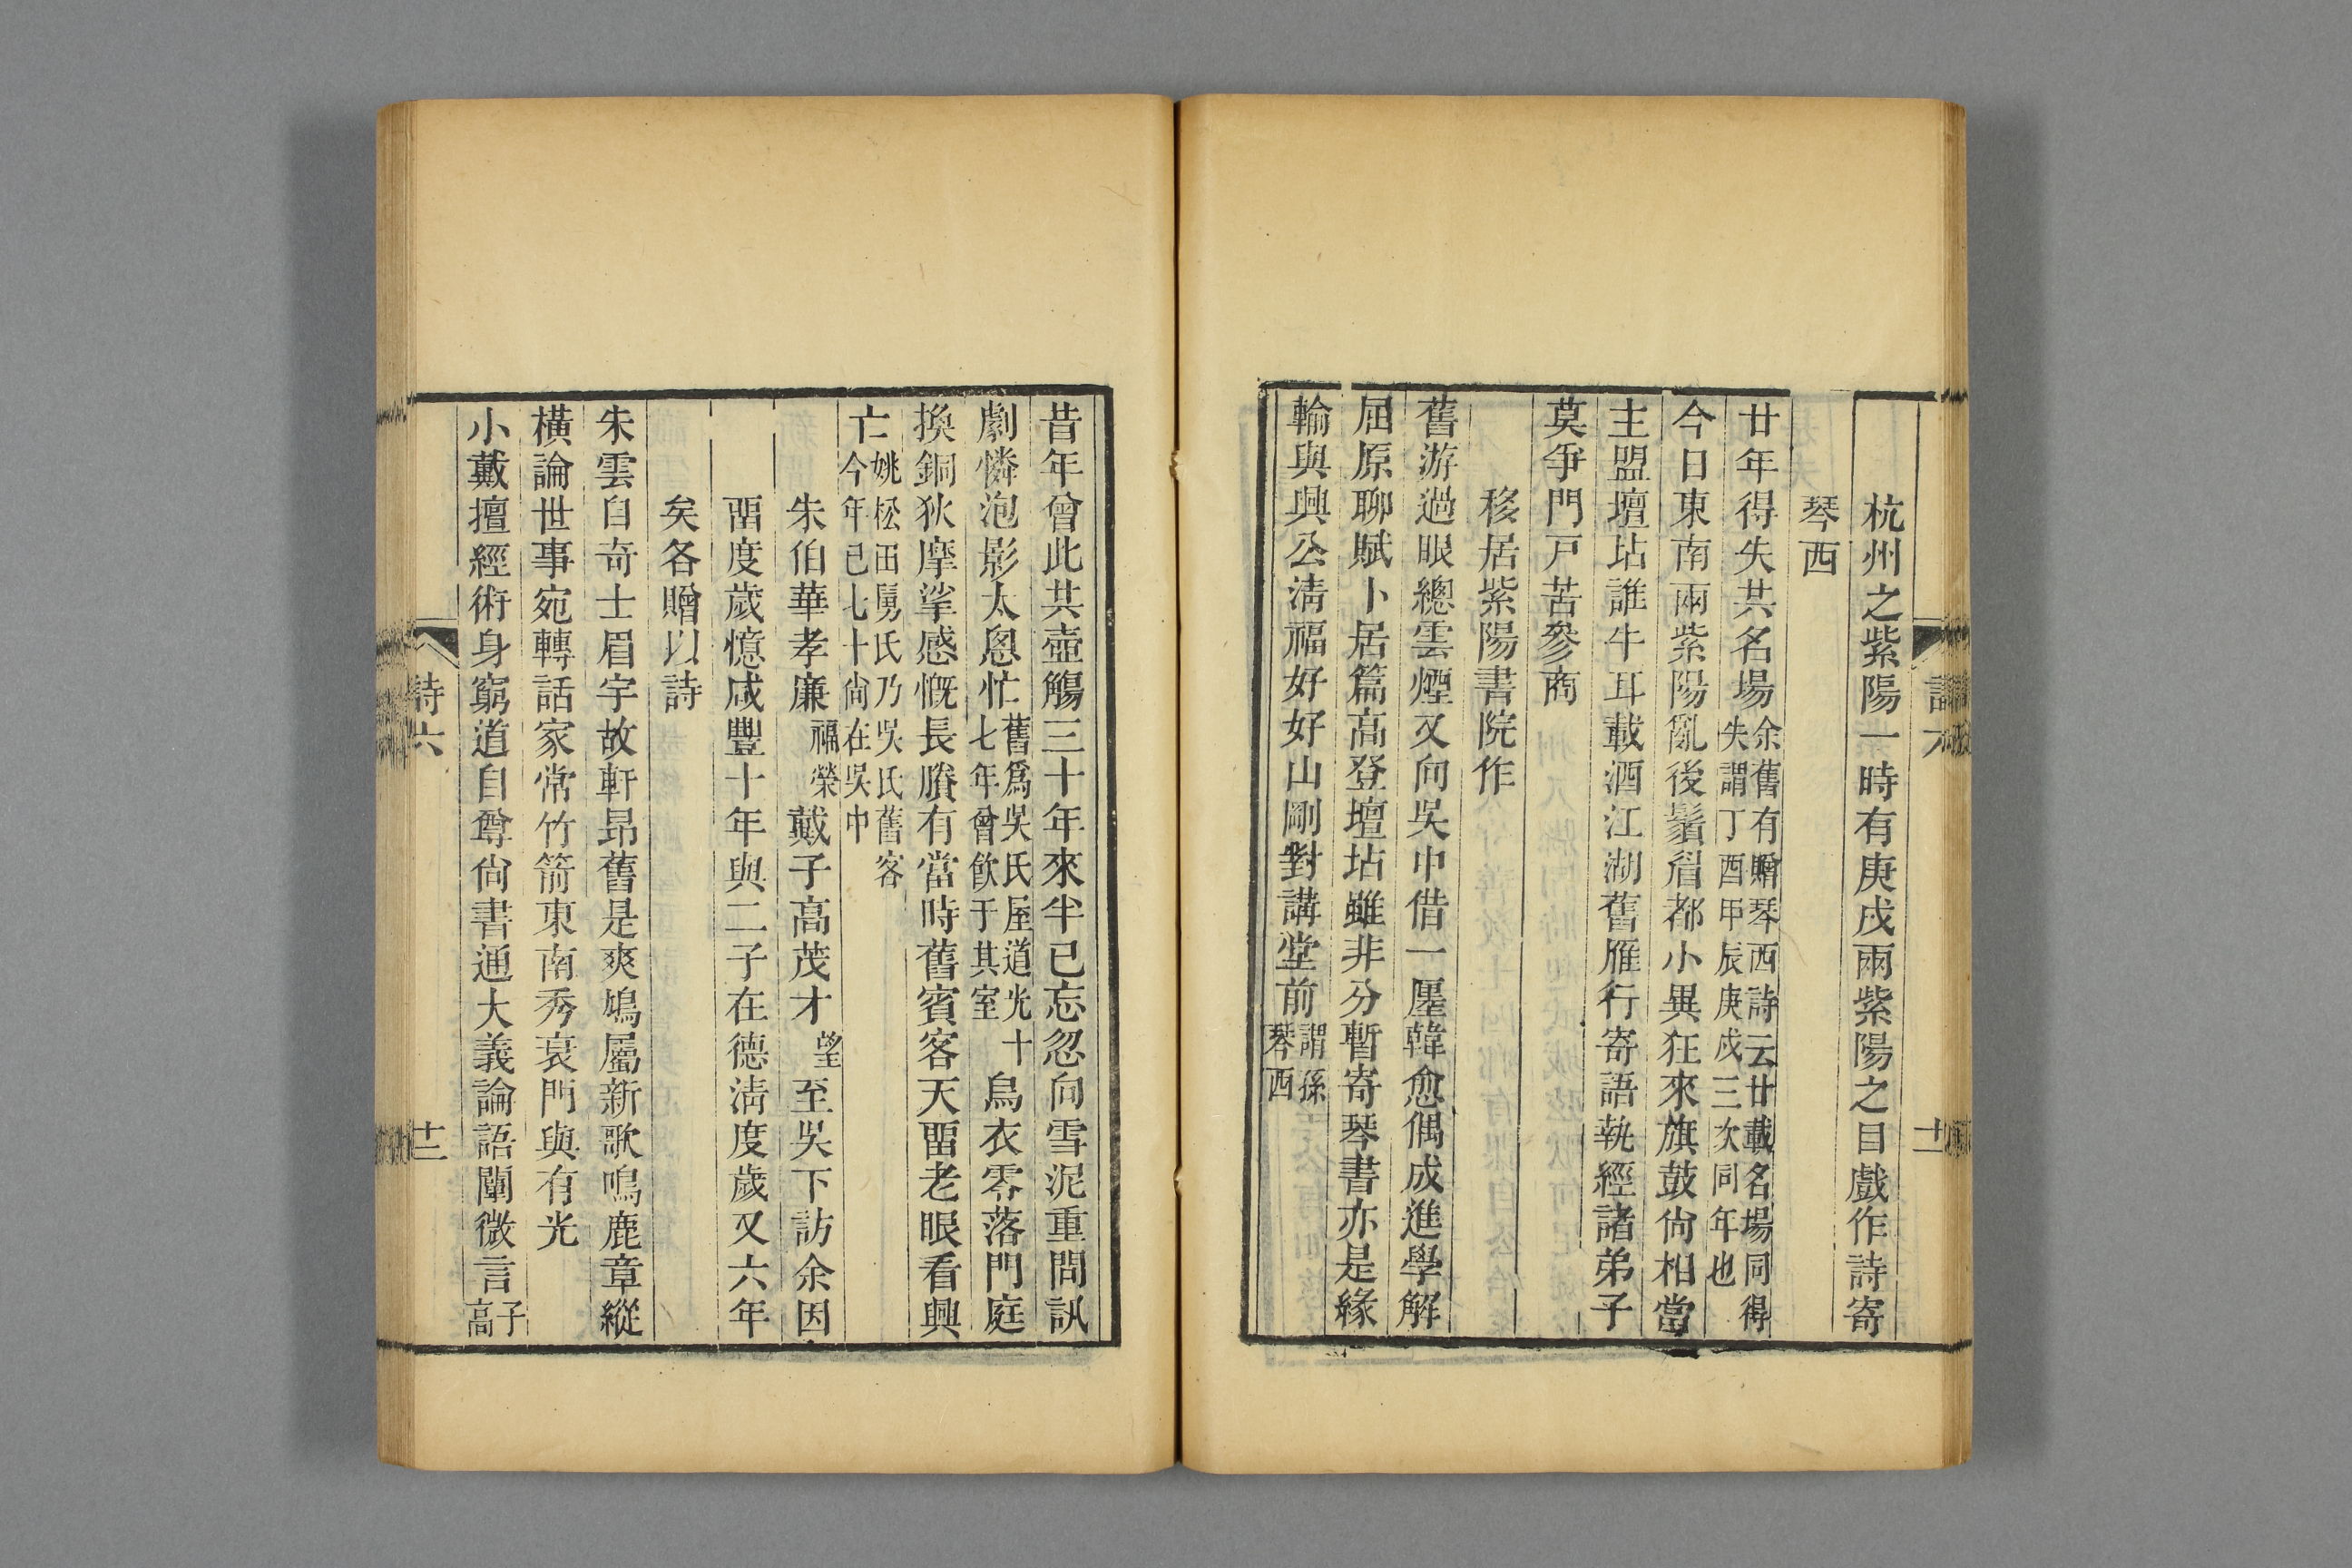 杭州之紫陽一時有庚戌兩紫陽之目戲作詩寄
琴西
廿年得失共名場余舊有贈琴西詩云廿載名場同得失謂丁酉甲辰庚戌三次同年也
今日東南兩紫陽亂後鬚眉都小異狂來旗鼓尙相當
主盟壇坫誰牛耳載酒江湖舊雁行寄語執經諸弟子
莫爭門戸苦參商
移居紫陽書院作
舊游過眼總雲煙又向吳中借一廛韓愈偶成進學解
屈原聊賦卜居篇高登壇坫雖非分暫寄琴書亦是緣
輸與興公淸福好好山剛對講堂前謂孫琴西
詩六
十二
昔年曾此共壺觴三十年來半已忘忽向雪泥重問訊
劇憐泡影太恩忙舊爲吳氏屋道光十七年曾飮于其室烏衣零落門庭
換銅狄摩挲感慨長賸有當時舊賓客天畱老眼看興
亡姚松田舅氏乃吳氏舊客今年已七十尙在吳中
朱伯華孝廉福榮戴子高茂才望至吳下訪余因
畱度歲憶咸豐十年與二子在德淸度歲又六年
矣各贈以詩
朱雲自奇士眉宇故軒昂舊是爽鳩屬新歌鳴鹿章縱
橫論世事宛轉話家常竹箭東南秀衰門與有光
小戴擅經術身窮道自尊尙書通大義論語闡微言子高
詩六
十三